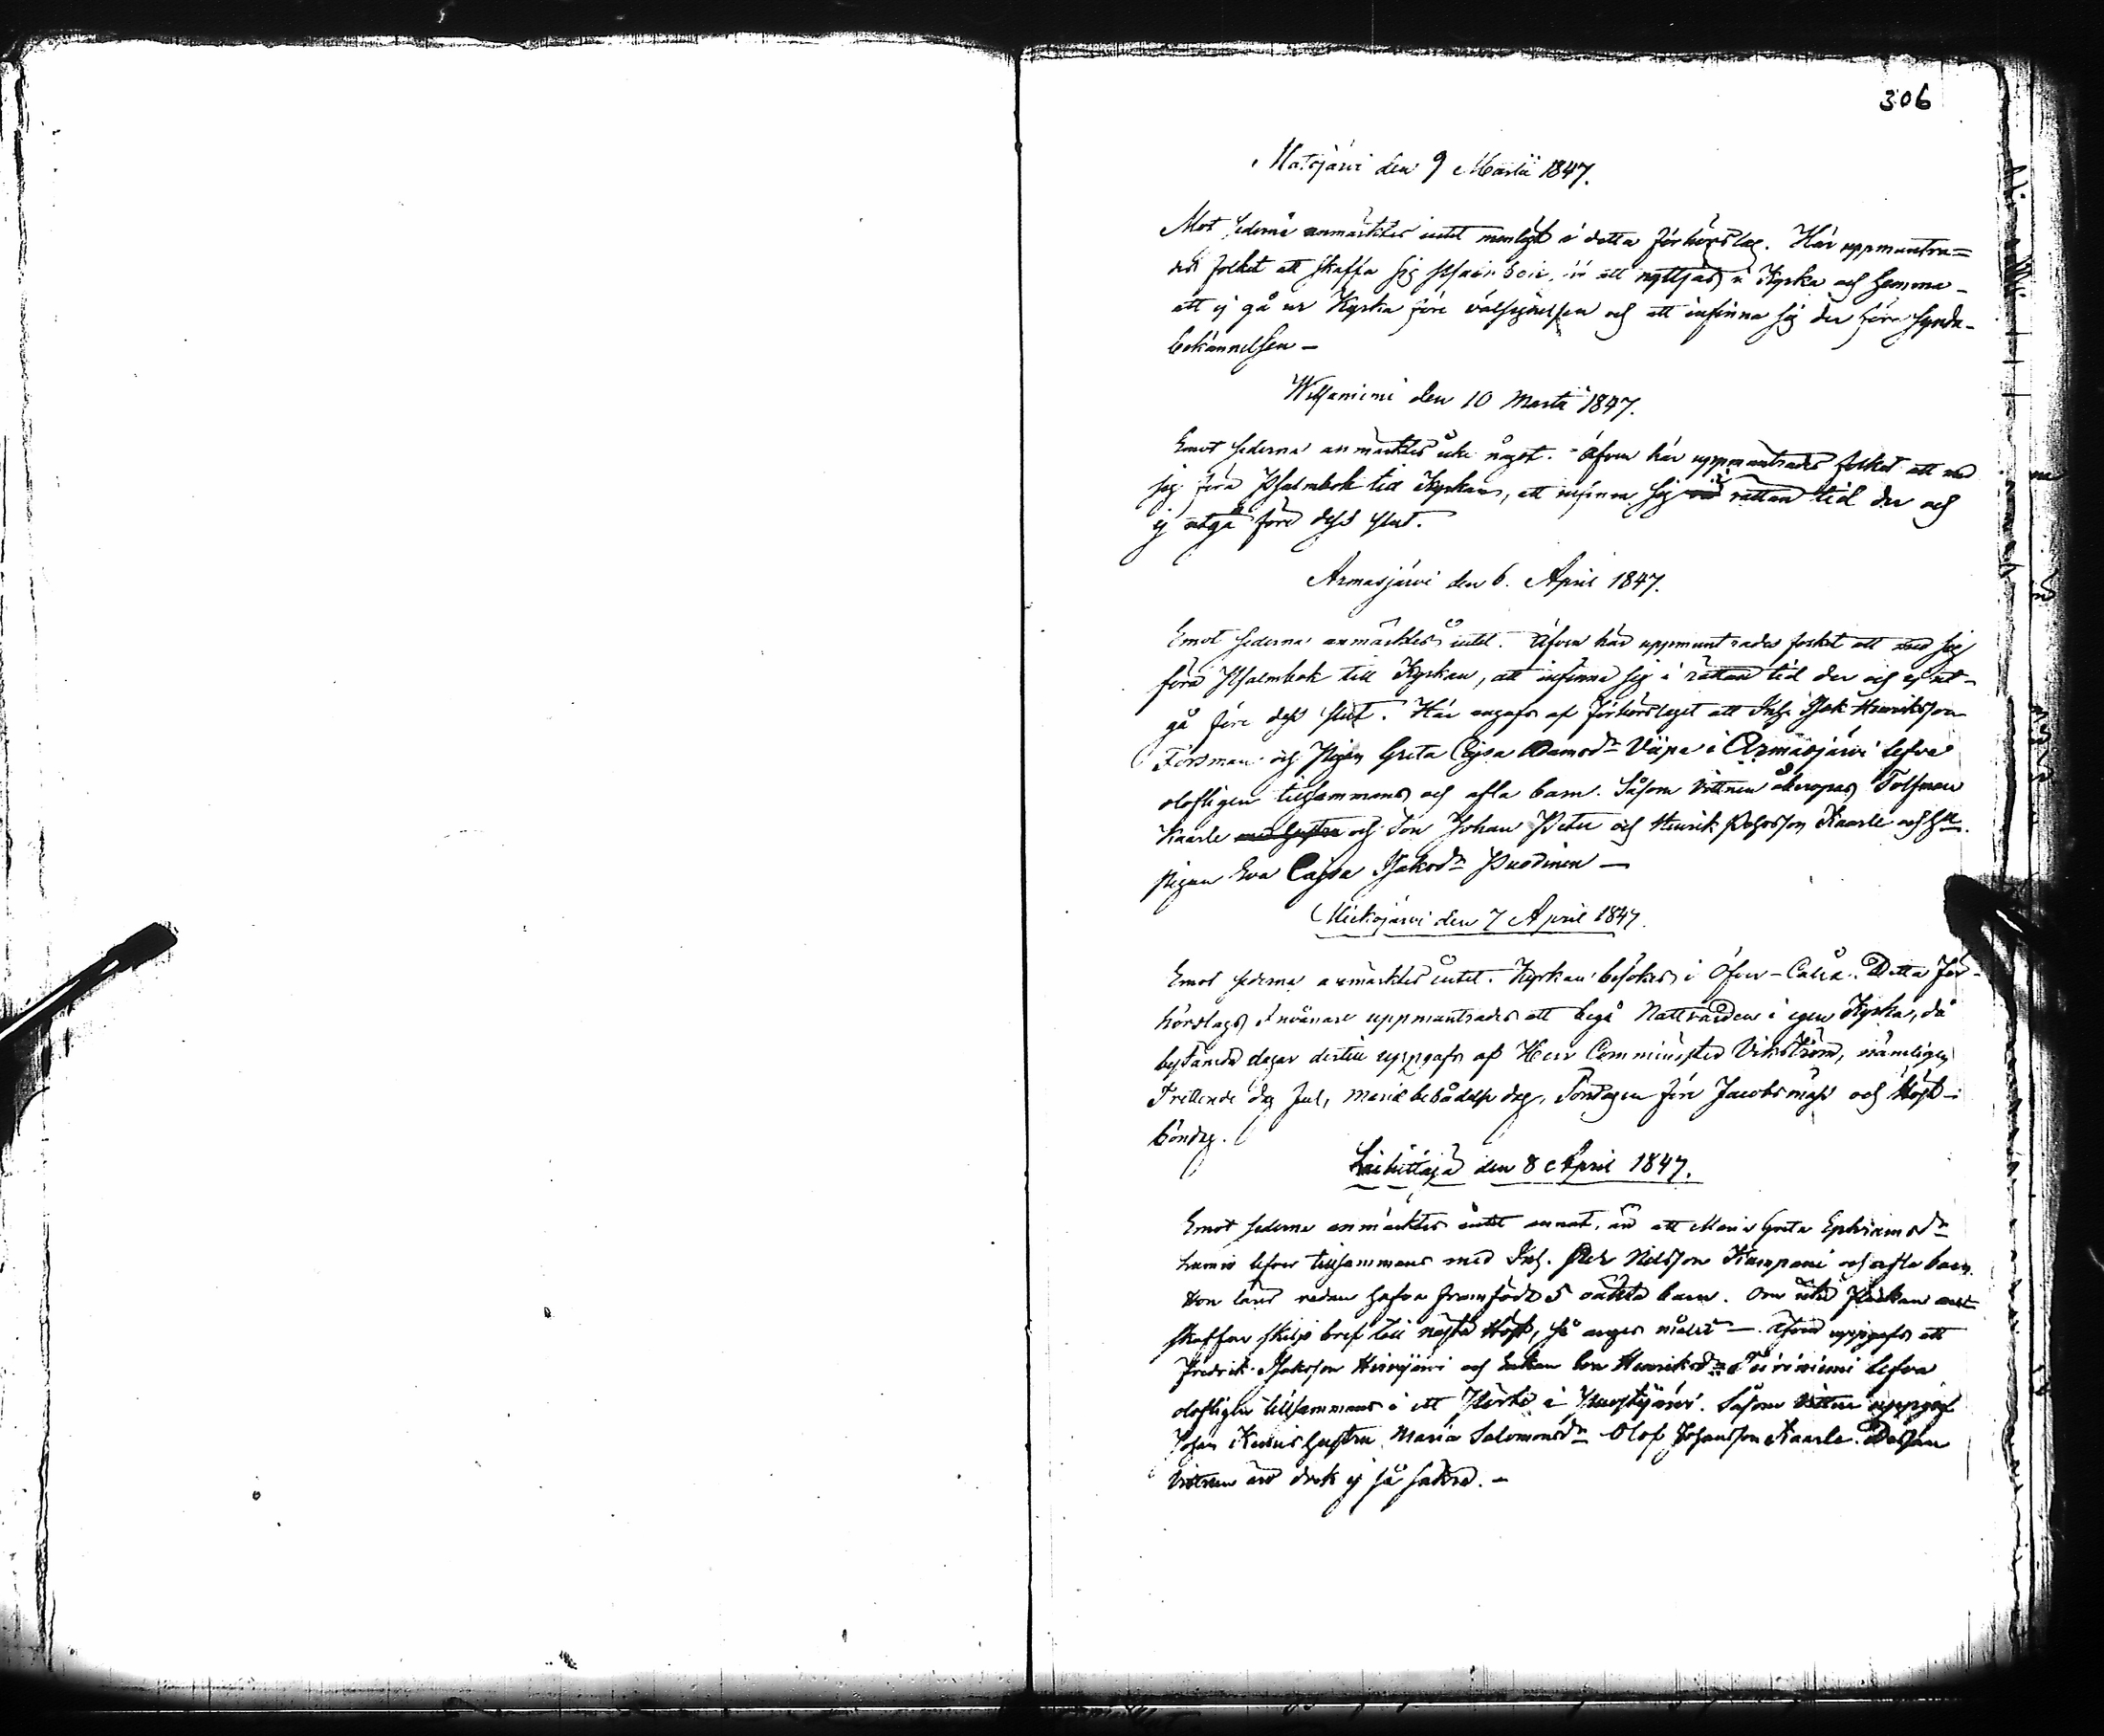 306
Matojärvi den 9 Martii 1847.
Mot sederna anmärktes intet menligt i detta förhörslag. Här uppmuntra=
des folket att skaffa sig att nyttjas i Kyrka och hemma -
att ej gå ur Kyrka före välsignelsen och att infinna sig der före synda-
bekännelsen -
den 10 Martii 1847.
Emot sederna anmärktes icke något. Äfven här uppmuntrades folket att med
sig föra Psalmbok till Kyrkan, att infinna sig rättan tid der och
ej utgå före dess slut.
Armasjärvi den 6. April 1847.
Emot sederna anmärktes intet. Äfven här uppmuntrades folket att med sig
föra Psalmbok till Kyrkan, att infinna sig i rättan tid der och ej ut-
gå före dess slut. Här angafs af förhörslaget att Inh. Isak Henriksson
Forsman och Pigan Greta Cajsa Adamsdr Viipa i Armasjärvi lefva
olofligen tillsammans och afla barn. Såsom vittnen åberopas Tolfman
Kaarle och Son Johan Peter och Henrik Kaarle och
pigan Eva Cajsa Isaksdr Puodinen —
Mickojärvi den 7 April 1847.
Emot sederna anmärktes intet. Kyrkan besökes i Öfver-Calix. Detta för-
hörslags invånare uppmuntrades att begå Nattvarden i egen Kyrka, då
bestämda dagar dertill uppgafs af Herr Comminister Vikström, nämligen
Trettende dag Jul, Mariæ bebådelse dag, Söndagen före Jacobsmäss och Höst-
böndag.
den 8 April 1847.
Emot sederna anmärktes intet annat, än att Maria Greta Ephraimsdr
lefver tillsammans med Inh. Nilsson Kamponi och afla barn.
Hon redan hafva framfödt 5 oäkta barn. Om icke
skaffar skiljobref till nästa Höst, så anges målet — Äfven uppgafs att
Fredrik Isaksson Hirvijärvi och Enkan Eva Henriksdr lefva
olofligen tillsammans i ett Pörte i Puostijärvi. Såsom vittne uppgaf
Johan hustru Maria Salomonsdr Olof Johansson Kaarle. Dessa
vittnen äro dock ej så säkra. -